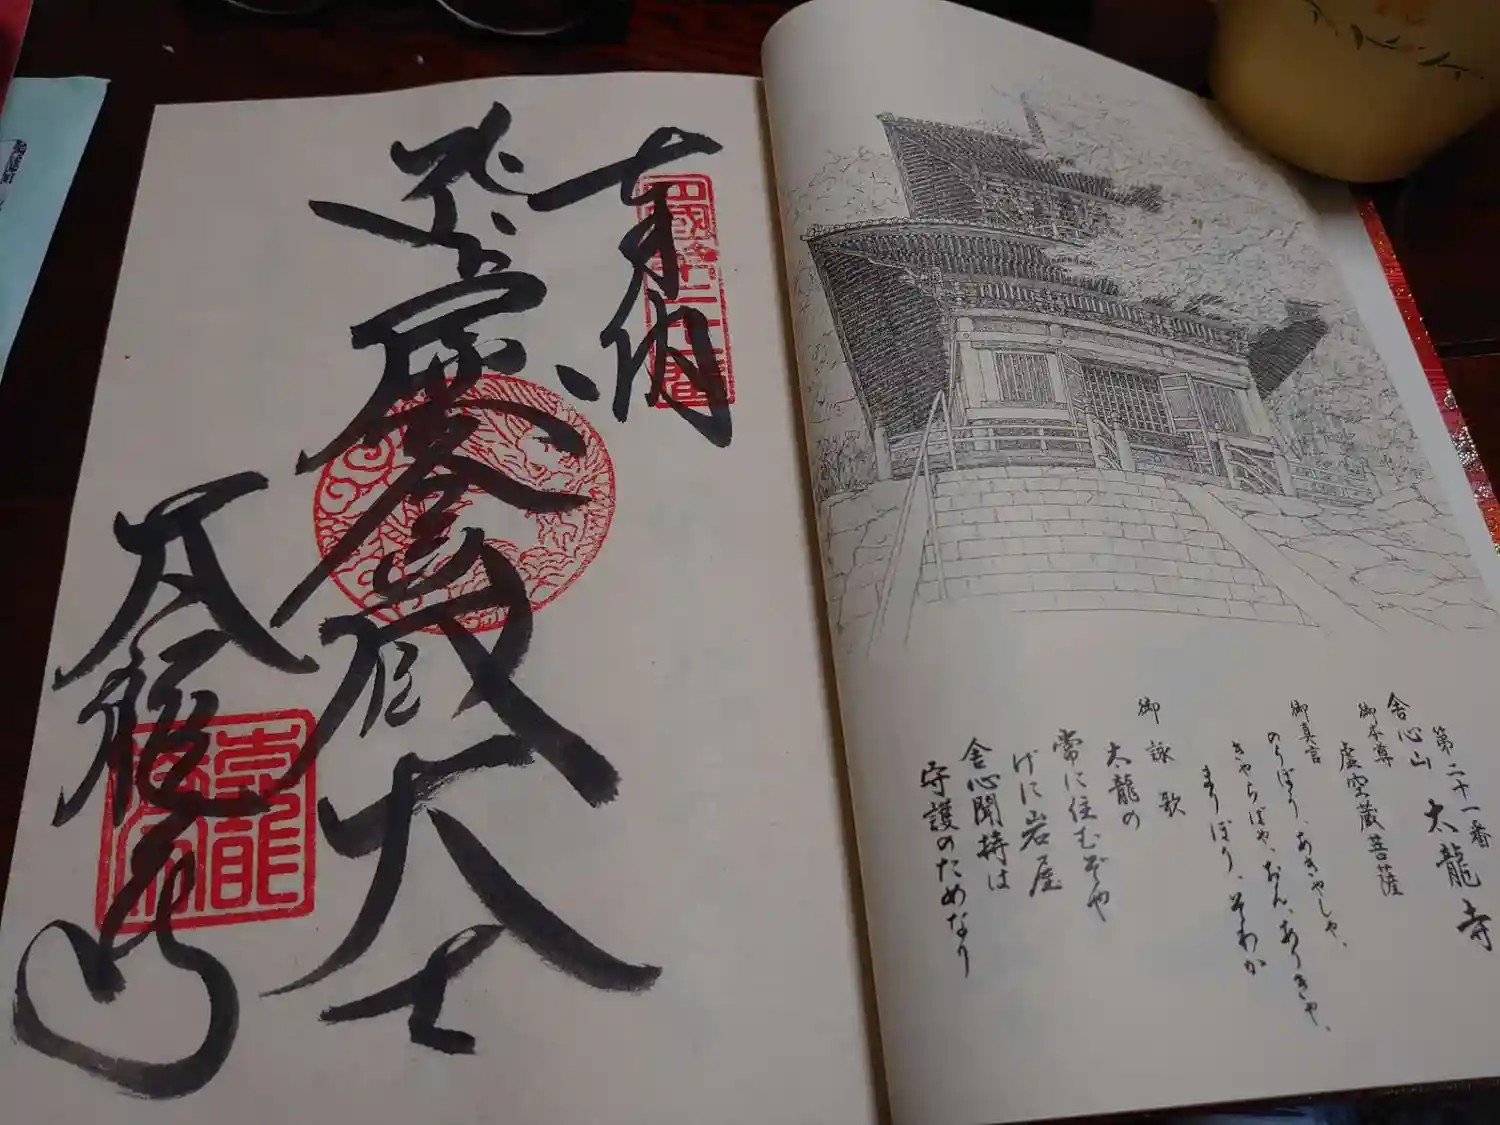 第二十一番
舎心山 太龍寺
御本尊
虚空蔵菩薩
御真言
のうぼう、あきゃしゃ、
きゃらばや、おん、ありきゃ、
まりぼり、そわか
御詠歌
太龍の
常に住むぞや
げに岩屋
舎心聞持は
守護のためなり
奉納
虚空蔵大士
太龍寺
四國第二十一番